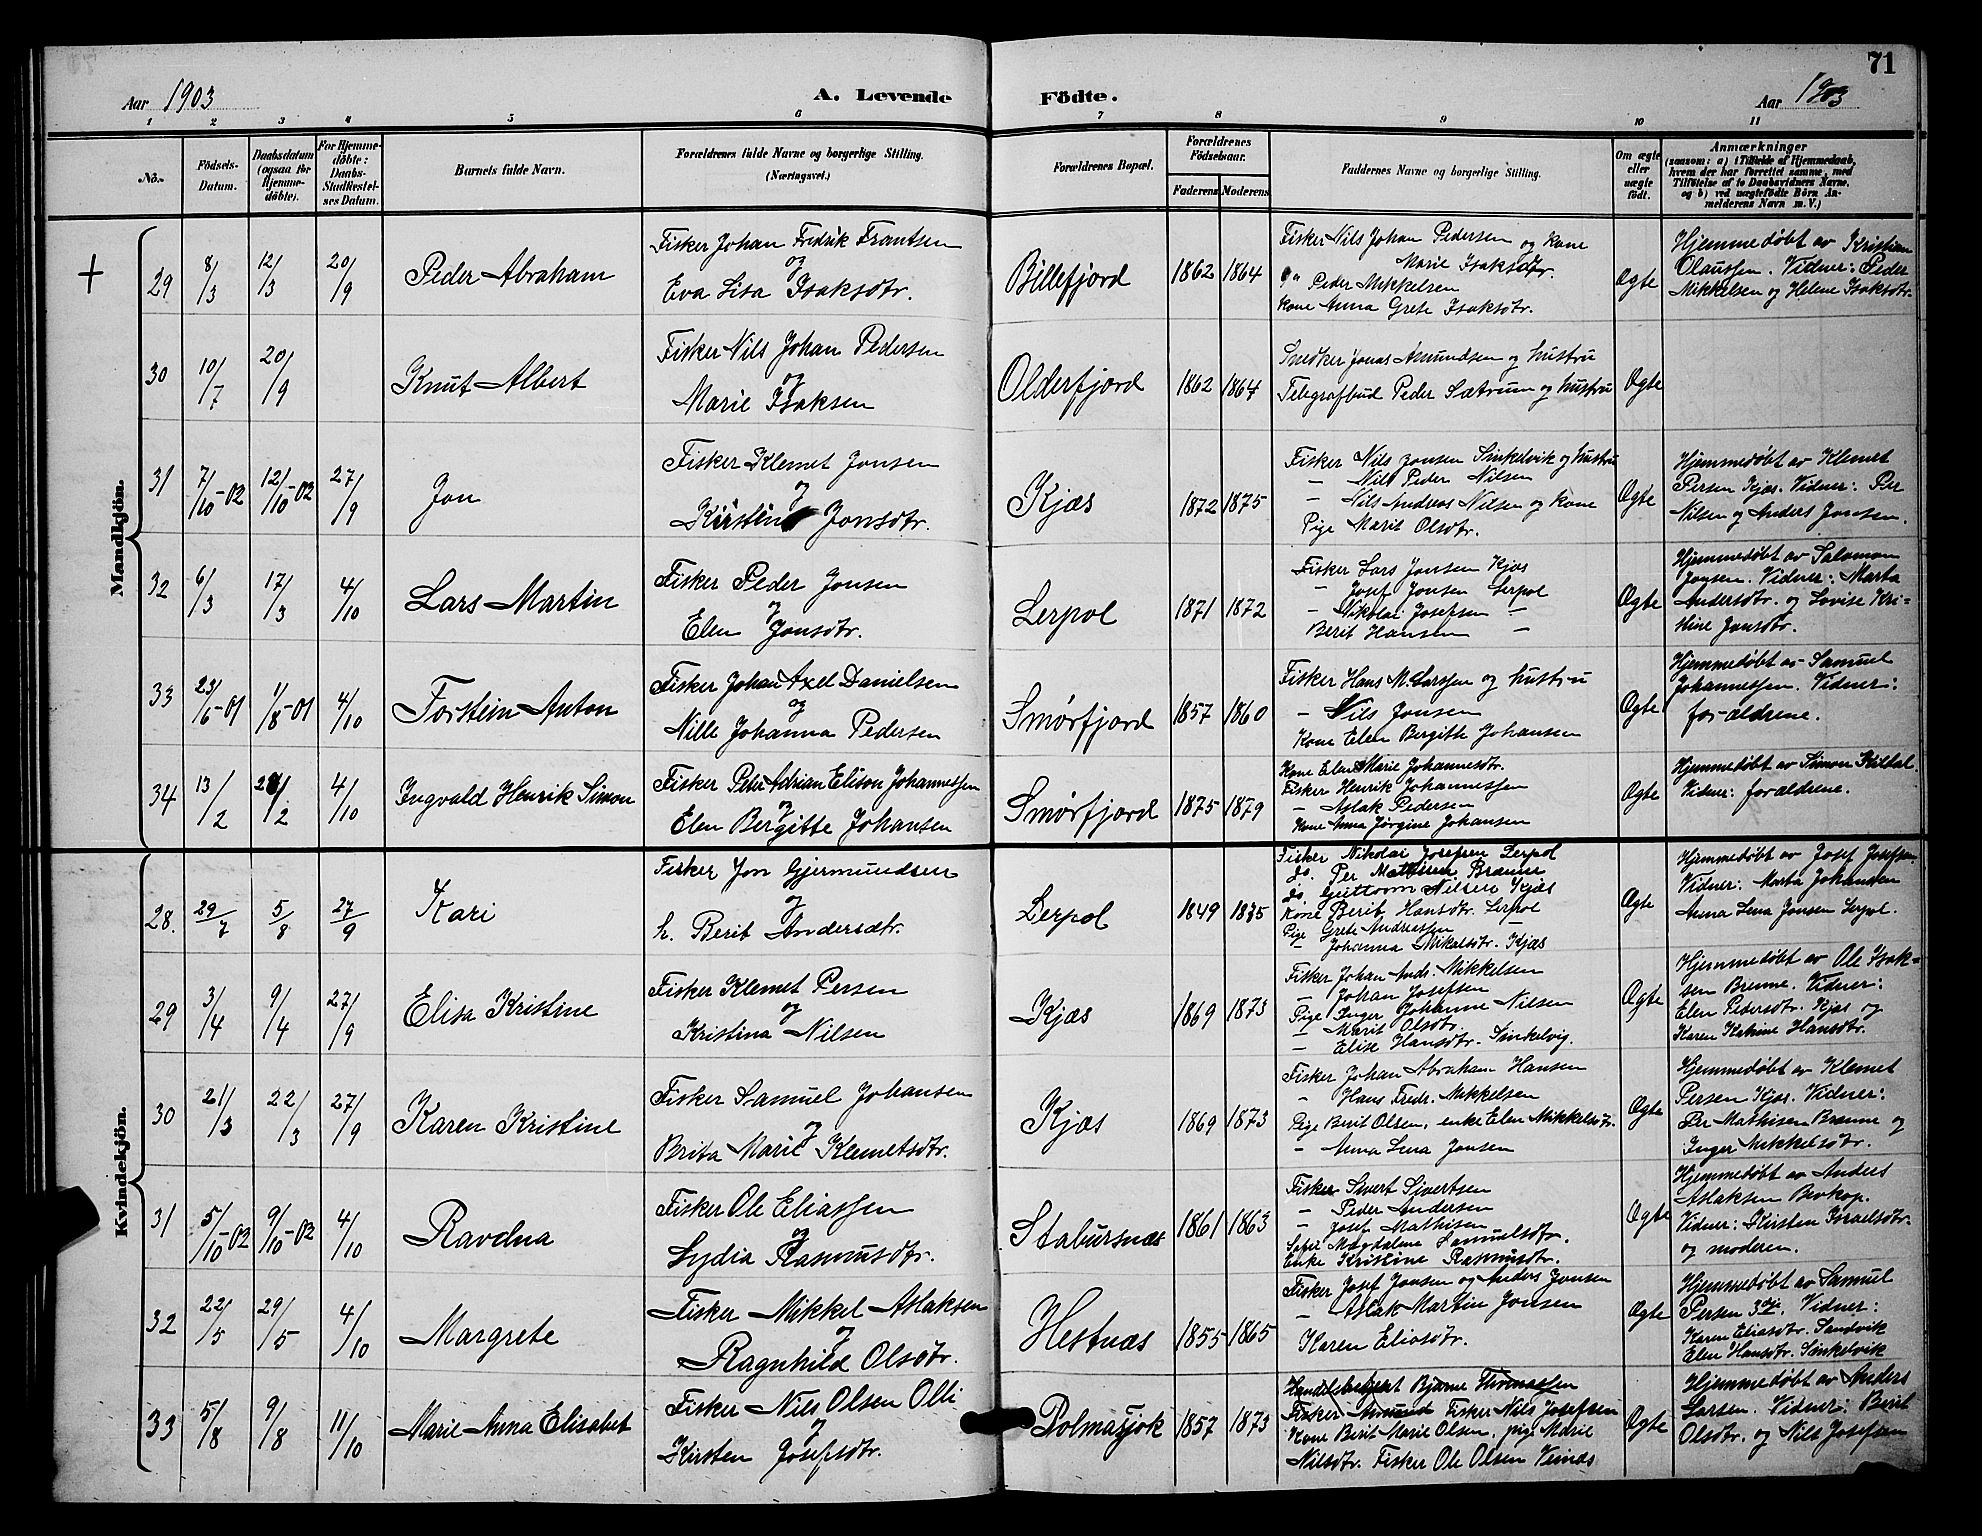 71
Aar 1903
A. Levende
Födte.
Aar 1903
1 2 3 4 5 6 7 8 9 10 11
No.
Födsels-
Datum.
Daabsdatum
(ogsaa for
Hjemme-
döbte).
For Hjemme-
döbte:
Daabs-
Stadfæstel-
ses Datum.
Barnets fulde Navn.
Forældrenes fulde Navne og borgerlige Stilling.
(Næringsvei.)
Forældrenes Bopæl.
Forældrenes
Födselsaar.
Faderens
Moderens
Faddernes Navne og borgerlige Stilling.
Om ægte
eller
uægte
födt.
Anmærkninger
(saasom: a) i Tilfælde af Hjemmedaab,
hvem der har forrettet samme, med
Tilföielse af to Daabsvidners Navne,
og b) ved uægtefödte Börn An-
melderens Navn m. V.)
Mandkjön.
+
29
8/3
12/3
20/9
Peder Abraham
Fisker Johan Fredrik Frantsen
og
Eva Lisa Isaksdtr.
Billefjord
1862
1864
Fisker Nils Johan Pedersen og kone
Marie Isaksdtr.
Peder Mikkelsen
Kone Anna Grete Isaksdtr.
Ægte
Hjemmedøbt av Kristian
Olaussen. Vidner: Peder
Mikkelsen og Helene Isaksdtr.
30
10/7
20/9
Knut Albert
Fisker Nils Johan Pedersen
og
Marie Isaksen
Olderfjord
1862
1864
Snedker Jonas Amundsen og hustru
Telegrafbud Peder Sætrum og hustru
Ægte
31
7/10-02
12/10-02
27/9
Jon
Fisker Klemet Jonsen
og
Kirsten Jonsdtr.
Kjæs
1872
1875
Fisker Nils Jonsen Sinkelvik og hustru
– Nils Peder Nilsen
– Nils Andreas Nilsen og kone
Pige Marit Olsdtr.
Ægte
Hjemmedøbt av Klemet
Persen Kjæs. Vidner: Per
Nilsen og Anders Jonsen.
32
6/3
17/3
4/10
Lars Martin
Fisker Peder Jonsen
og
Elen Jonsdtr.
Lerpol
1871
1872
Fisker Lars Jonsen Kjæs
– Josef Jonsen Lerpol
– Nikolai Josefsen –
Berit Hansen –
Ægte
Hjemmedøbt av Salamon
Jonsen. Vidner: Marta
Andersdtr. og Lovise Kri-
stine Jonsdtr.
33
23/6-01
1/8-01
4/10
Torstein Anton
Fisker Johan Axel Danielsen
og
Nille Johanna Pedersen
Smørfjord
1857
1860
Fisker Hans M. Larssen og hustru
– Nils Jonsen
Kone Elen Bergitte Johansen
Ægte
Hjemmedøbt av Samuel
Johannessen. Vidner:
forældrene.
34
13/2
/2
4/10
Ingvald Henrik Simon
Fisker Peter Adrian Elison Johannessen
og
Elen Bergitte Johansen
Smørfjord
1875
1879
Kone Elen Marie Johannesdtr.
Fisker Henrik Johannessen
– Aslak Pedersen
Kone Anna Jørgine Johansen
Ægte
Hjemmedøbt av Simon Kildal.
Vidner: forældrene.
Kvindekjön.
28.
29/7
5/8
27/9
Kari
Fisker Jon Gjermundsen
og
h. Berit Andersdtr.
Lerpol
1849
Fisker Nikolai Josefsen Lerpol
do. Per Mathisen Brænne
do. Guttorm Nilsen Kjæs
Kone Berit Hansdtr. Lerpol
Pige Grete Andreassen –
– Johanna Mikalsdtr. Kjæs
Ægte
Hjemmedøbt av Josef Josefsen.
Vidner: Marta Johansen
Anna Lena Jonsen Lerpol.
29
3/4
9/4
27/9
Elisa Kristine
Fisker Klemet Persen
og
Kristina Nilsen
Kjæs
1869
1873
Fisker Johan Andr. Mikkelsen
– Johan Josefsen
Pige Inger Johanne Nilsen
– Marit Olsdtr.
– Elise Hansdtr. Sinkelvig.
Ægte
Hjemmedøbt av Ole Isak-
sen Brenne. Vidner:
Elen Pedersdtr. Kjæs og
Karen Katrine Hansdtr.
30
21/3
22/3
27/9
Karen Kristine
Fisker Samuel Johansen
og
Brita Marie Klemetsdtr.
Kjæs
1869
1873
Fisker Johan Abraham Hansen
" Hans Fredr. Mikkelsen
Pige Berit Olsen, enke Elen Mikkelsdtr.
– Anna Lena Jonsen
Ægte
Hjemmedøbt av Klemet
Persen Kjæs. Vidner:
Per Mathisen Brænne og
Inger Mikkelsdtr.
31
5/10-02
9/10-02
4/10
Ravdna
Fisker Ole Eliassen
og
Lydia Rasmusdtr.
Stabursnæs
1861
1863
Fisker Sivert Sivertsen
– Peder Andersen
– Josef Mathisen
Magdalena Samuelsdtr.
Enke Kristine Rasmusdtr.
Ægte
Hjemmedøbt av Anders
Aslaksen Bevkop.
Vidner: Kirsten Israelsdtr.
og moderen.
32
22/5
29/5
4/10
Margrete
Fisker Mikkel Aslaksen
og
Ragnhild Olsdtr.
Hestnæs
1855
1865
Fisker Josef Jonsen og Anders Jonsen
– Aslak Martin Jonsen
Karen Eliasdtr.
Ægte
Hjemmedøbt av Samuel
Persen Vidner:
Karen Eliasdtr. Sandvik
Elen Hansdtr. Sinkelvik
33
5/8
9/8
11/10
Marie Anna Elisabet
Fisker Nils Olsen Olli
og
Kirsten Josefsdtr.
Polmasjok
1857
1873
Bjarne Thomassen
Fisker Amund Fisker Nils Josefsen
Kone Berit Marie Olsen, pige Marie
Nilsdtr. Fisker Ole Olsen Veinæs
Ægte
Hjemmedøbt av Anders
Larsen. Vidner: Berit
Olsdtr. og Nils Josefsen